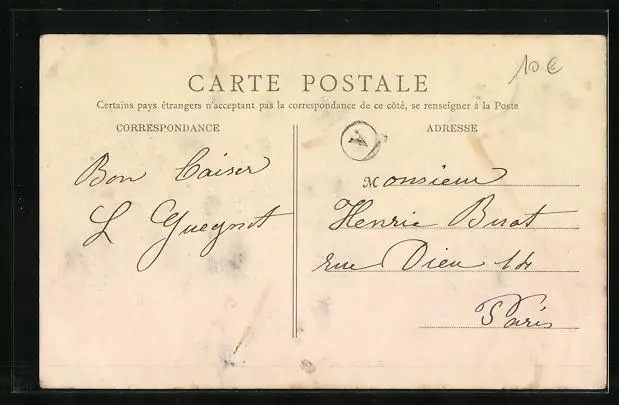 10€
CARTE POSTALE
Certains pays étrangers n'acceptant pas la correspondance de ce côté, se renseigner à la Poste
CORRESPONDANCE
ADRESSE
A
Bon Baiser
L Guegnot
Monsieur
Henrie Buat
rue Dieu 14
Paris